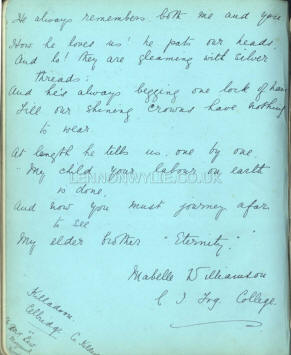 He always remembers both me and you
How he loves us! he pats our heads
And lo! they are gleaming with silver
threads:
And he's always begging one lock of hair
Till our shining crowns have nothing
to wear.
At length he tells us, one by one.
"My child your labour on earth
is done.
LENNONWYLIE.CO.UK
And now you must journey afar
to see
My elder brother "Eternity."
Mabelle Williamson
C I Trg. College.
Killadoon
Celbridge